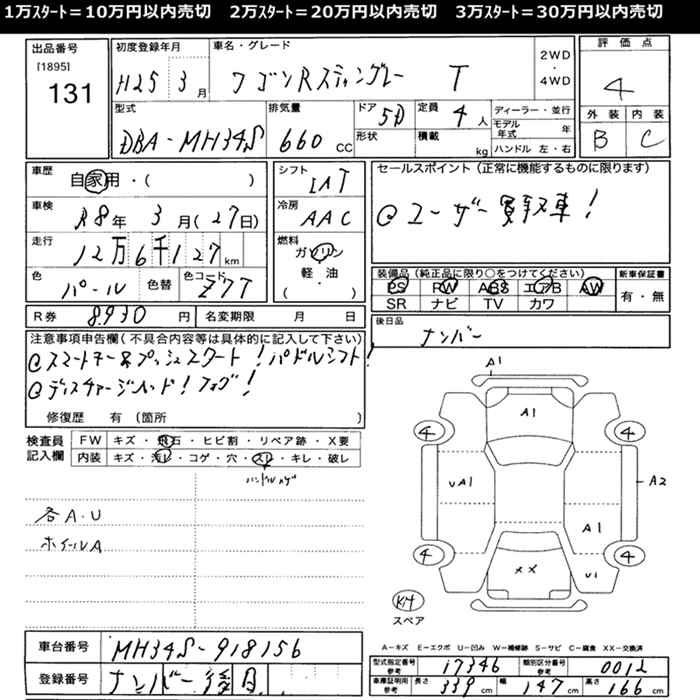 1万ｽﾀｰﾄ＝10万円以内売切　2万ｽﾀｰﾄ＝20万円以内売切　3万ｽﾀｰﾄ＝30万円以内売切
出品番号
[1895]
131
初度登録年月
H25 3月
車名・グレード
ワゴンRスティングレー T
2WD・4WD
評価点
4
外装 内装
B C
型式
DBA-MH34S
排気量
660 CC
ドア
5D
形状
定員
4人
積載
kg
ディーラー・並行
モデル年式 年
ハンドル 左・右
車歴
自家用・( )
車検
R8年 3月(27日)
走行
12万6千127km
色
パール
色替
色コード
Z7T
シフト
IAT
冷房
AAC
燃料
ガソリン
軽・油
( )
セールスポイント（正常に機能するものに限ります）
@ユーザー買取車！
装備品（純正品に限り○をつけてください） 新車保証書
PS PW ABS エアB AW 有・無
SR ナビ TV カワ
R券 8,930円 名変期限 月 日
後日品
ナンバー
注意事項申告欄（不具合内容等は具体的に記入して下さい）
@スマートキー&プッシュスタート！パドルシフト！
@ディスチャージヘッド！フォグ！
修復歴 有（箇所 ）
検査員記入欄
FW キズ・飛石・ヒビ割・リペア跡・X要
内装 キズ・汚レ・コゲ・穴・スレ・キレ・破レ
各A・U
ホイールA
A1
A1
4 4
UA1
A2
A1
4 4
XX
U1
K14
スペア
A-キズ E-エクボ U-凹み W-補修跡 S-サビ C-腐食 XX-交換済
車台番号 MH34S-918156
登録番号 ナンバー後日
型式指定番号参考 17346 類別区分番号参考 0012
車庫証明用参考 長さ 339cm 幅 147cm 高さ 166cm